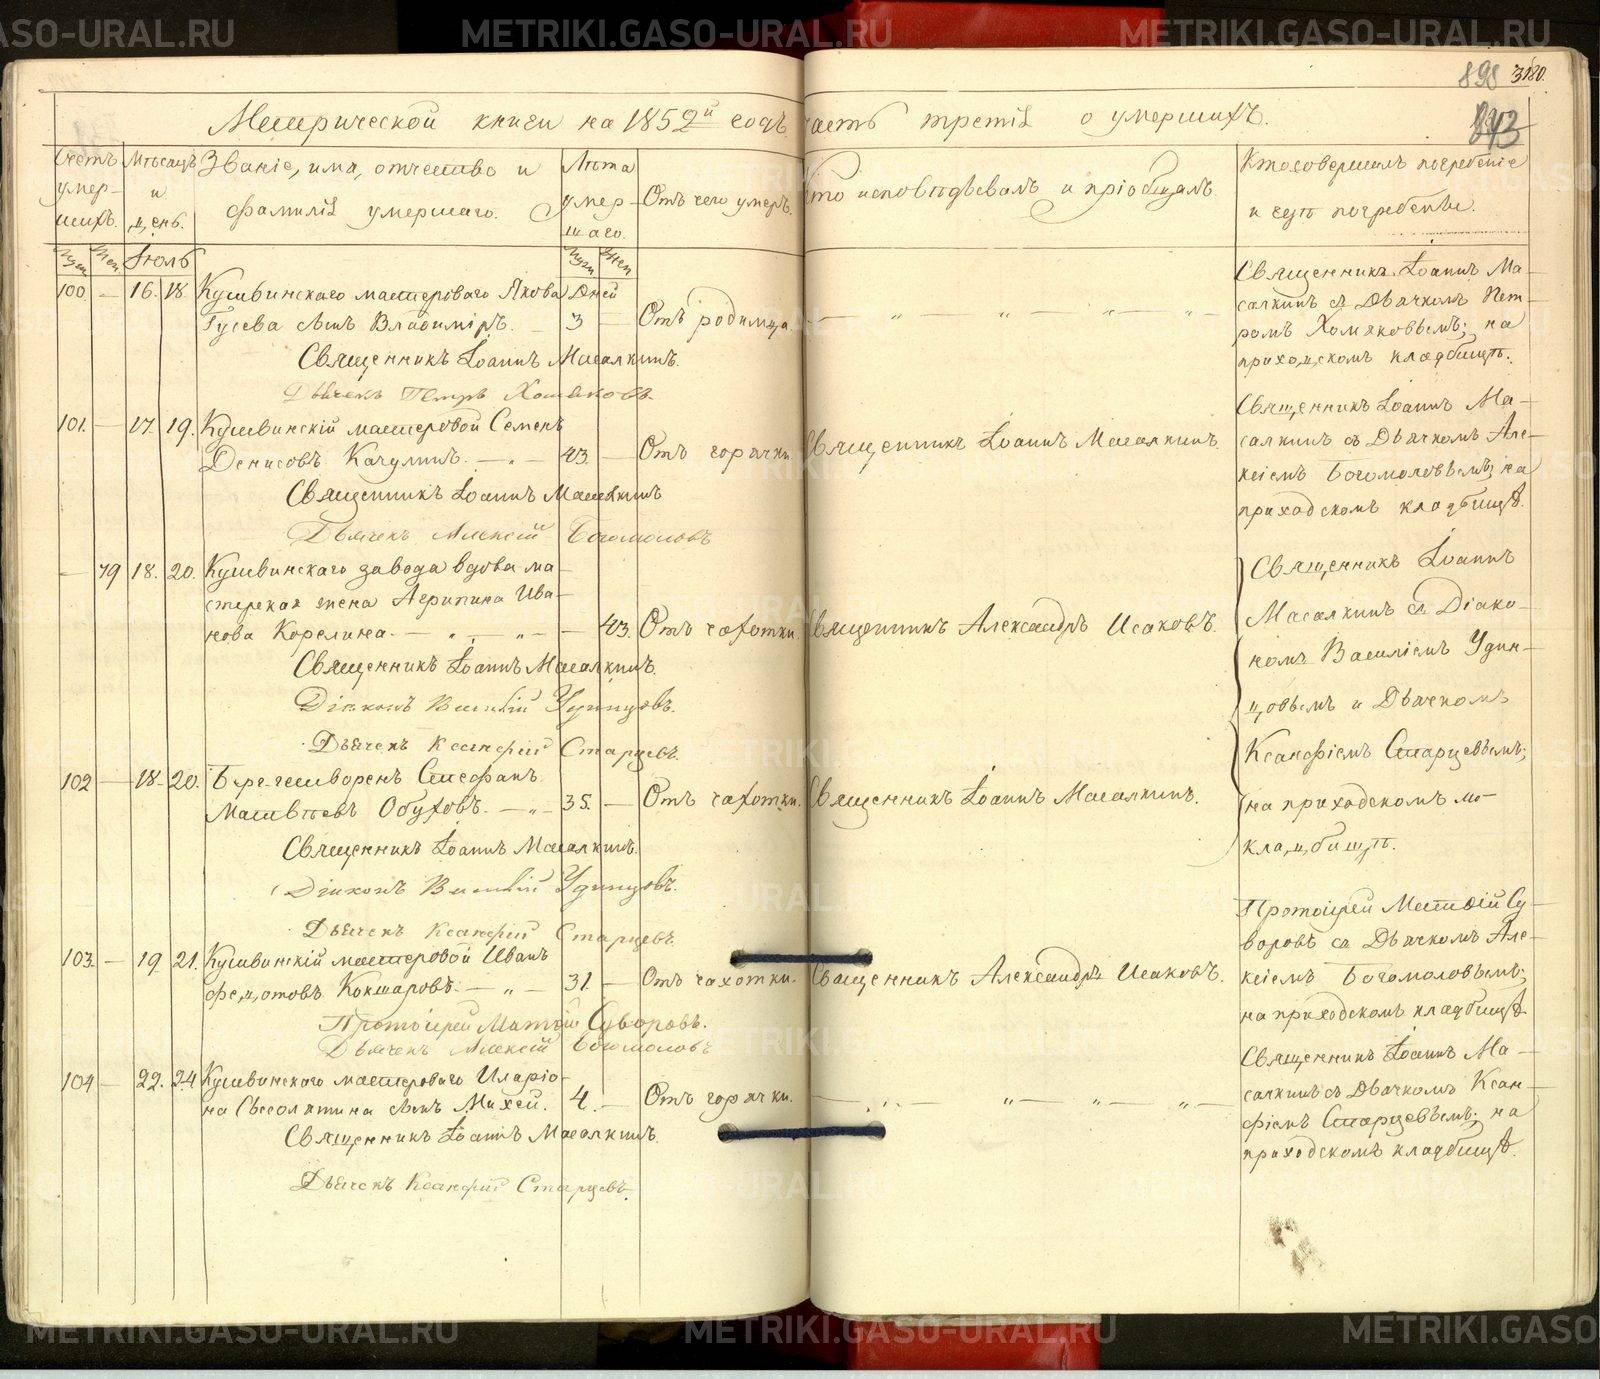 METRIKI.GASO-URAL.RU
898 3180.
Метрической книги на 1852й годъ часть третія о умершихъ.
843
Счетъ умер-шихъ.
Мѣсяцъ и день.
Званіе, имя, отчество и фамилія умершаго.
Лѣта умер-шаго.
Отъ чего умеръ.
Кто исповѣдывалъ и пріобщалъ
Кто совершалъ погребеніе и гдѣ погребены.
Муж Жен Іюль Муж Жен
100. — 16. 18. Кушвинскаго мастероваго Якова Дней
Гусева сынъ Владиміръ. — 3 — Отъ родимца.
Священникъ Іоаннъ Масалкинъ.
Дьячекъ Петръ Хомяковъ.
Священникъ Іоаннъ Ма-
салкинъ съ Дьячкомъ Пет-
ромъ Хомяковымъ; на
приходскомъ кладбищѣ.
101. — 17. 19. Кушвинскій мастеровой Семенъ
Денисовъ Качулинъ. — „ — 43. — Отъ горячки. Священникъ Іоаннъ Масалкинъ.
Священникъ Іоаннъ Масалкинъ
Дьячекъ Алексій Богомоловъ
Священникъ Іоаннъ Ма-
салкинъ съ Дьячкомъ Але-
ксіемъ Богомоловымъ; на
приходскомъ кладбищѣ.
— 79 18. 20. Кушвинскаго завода вдова ма-
стерская жена Агрипина Ива-
нова Корелина. — „ „ — — 43. Отъ чахотки. Священникъ Александръ Исаковъ.
Священникъ Іоаннъ Масалкинъ.
Діаконъ Василій Удинцовъ.
Дьячекъ Ксанфій Старцевъ.
Священникъ Іоаннъ
Масалкинъ съ Діако-
номъ Василіемъ Удин-
цовымъ и Дьячкомъ
Ксанфіемъ Старцевымъ;
на приходскомъ
кладбищѣ.
102 — 18. 20. Стефанъ
Матвѣевъ Обуховъ. — „ — 35. — Отъ чахотки. Священникъ Іоаннъ Масалкинъ.
Священникъ Іоаннъ Масалкинъ.
Діаконъ Василій Удинцовъ.
Дьячекъ Ксанфій Старцевъ.
103. — 19 21. Кушвинскій мастеровой Иванъ
Федотовъ Кокшаровъ. — „ — 31. — Отъ чахотки. Священникъ Александръ Исаковъ.
Протоіерей Матѳій Суворовъ.
Дьячекъ Алексій Богомоловъ
Протоіерей Матѳій Су-
воровъ съ Дьячкомъ Але-
ксіемъ Богомоловымъ;
на приходскомъ кладбищѣ.
104 — 22. 24 Кушвинскаго мастероваго Иларіо-
на сынъ Михей. 4. — Отъ горячки.
Священникъ Іоаннъ Масалкинъ.
Дьячекъ Ксанфій Старцевъ.
Священникъ Іоаннъ Ма-
салкинъ съ Дьячкомъ Ксан-
фіемъ Старцевымъ; на
приходскомъ кладбищѣ.